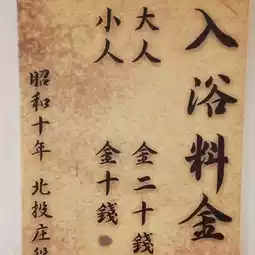 入浴料金
大人 金二十錢
小人 金十錢
昭和十年 北投庄役